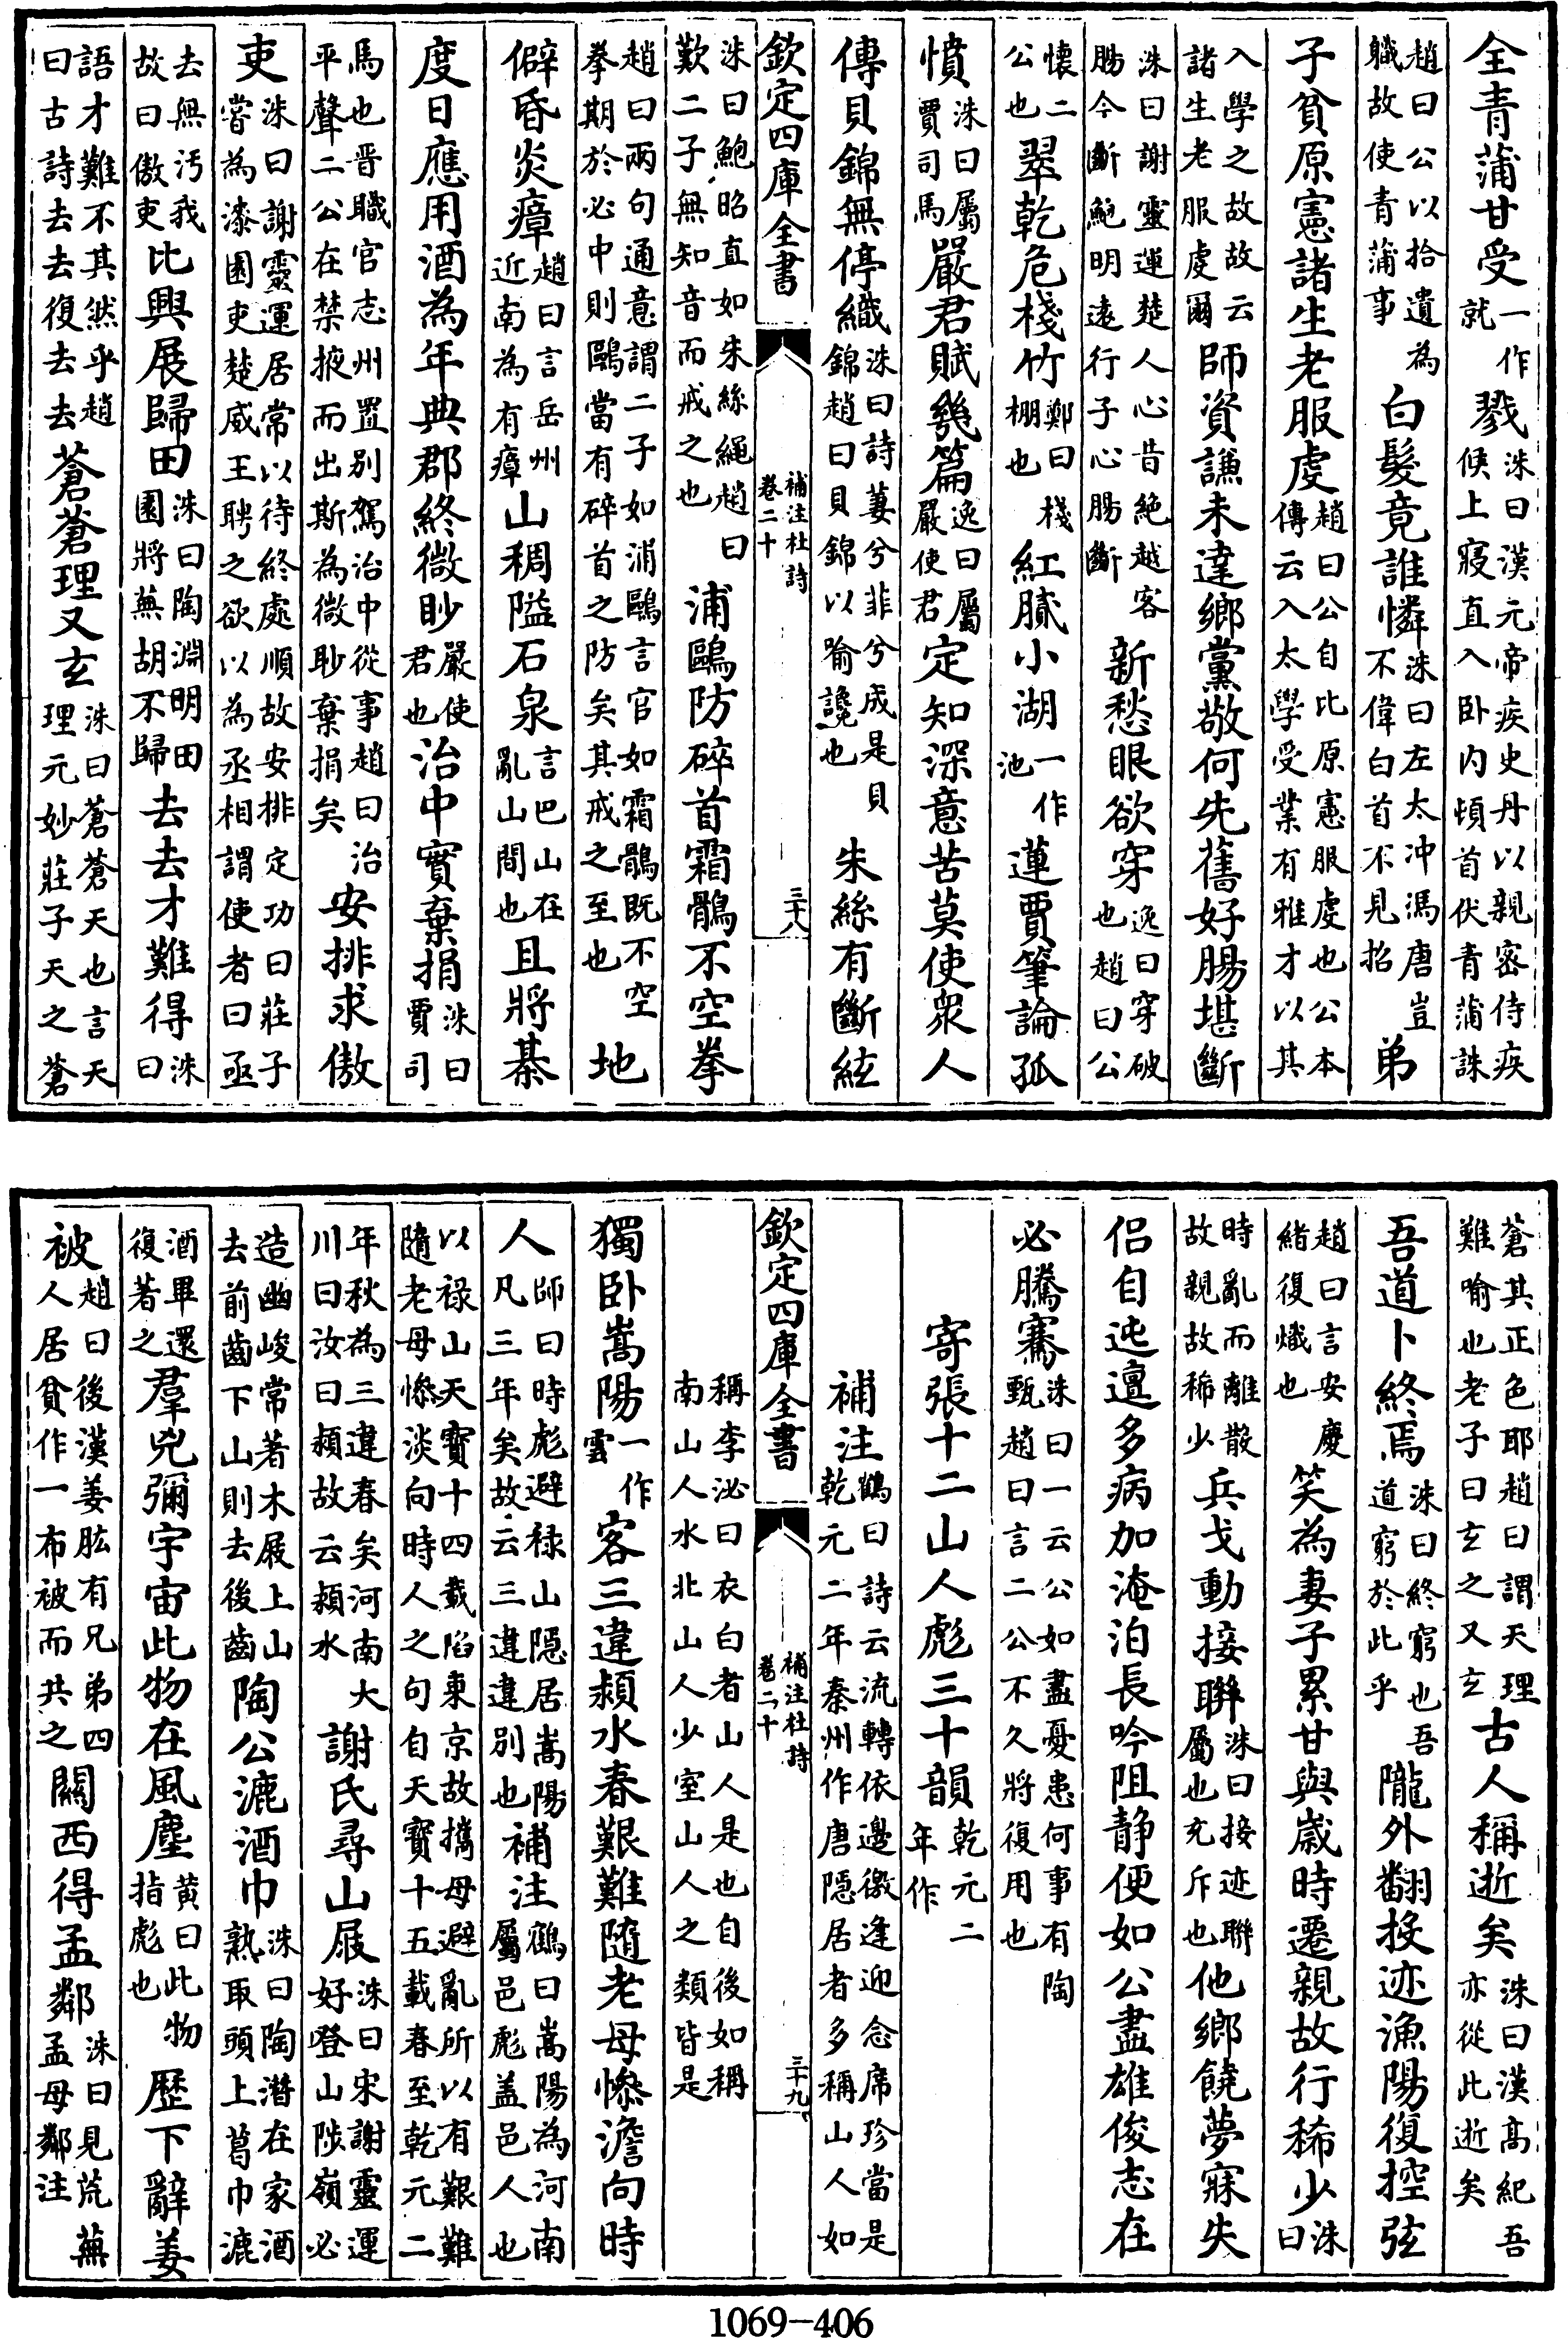 全青蒲甘受一作就戮洙曰漢元帝疾史丹以親密侍疾候上寢直入卧内頓首伏青蒲誅
趙曰公以拾遺為職故使青蒲事白髮竟誰憐洙曰左太冲馮唐豈不偉白首不見招弟
子貧原憲諸生老服虔趙曰公自比原憲服虔也公本傳云入太學受業有雅才以其
入學之故故云諸生老服虔爾師資謙未達鄉黨敬何先舊好腸堪斷
洙曰謝靈運楚人心昔絶越客腸今斷鮑明遠行子心腸斷新愁眼欲穿逸曰穿破也趙曰公
懷二公也翠乾危棧竹鄭曰棧棚也紅膩小湖一作池蓮賈筆論孤
憤洙曰屬賈司馬嚴君賦幾篇逸曰屬嚴使君定知深意苦莫使衆人
傳貝錦無停織洙曰詩萋兮菲兮成是貝錦趙曰貝錦以喻讒也朱絲有斷絃
欽定四庫全書 補注杜詩 卷二十 三十八
洙曰鮑昭直如朱絲繩趙曰歎二子無知音而戒之也浦鷗防碎首霜鶻不空拳
趙曰兩句通意謂二子如浦鷗言官如霜鶻既不空拳期於必中則鷗當有碎首之防矣其戒之至也地
僻昏炎瘴趙曰言岳州近南為有瘴山稠隘石泉言巴山在亂山間也且將棊
度日應用酒為年典郡終微眇嚴使君也治中實棄捐洙曰賈司
馬也晋職官志州置别駕治中從事趙曰治平聲二公在禁掖而出斯為微眇棄捐矣安排求傲
吏洙曰謝靈運居常以待終處順故安排定功曰莊子嘗為漆園吏楚威王聘之欲以為丞相謂使者曰亟
去無汚我故曰傲吏比興展歸田洙曰陶淵明田園將蕪胡不歸去去才難得洙曰
語才難不其然乎趙曰古詩去去復去去蒼蒼理又玄洙曰蒼蒼天也言天理元妙莊子天之蒼
蒼其正色耶趙曰謂天理難喻也老子曰玄之又玄古人稱逝矣洙曰漢髙紀吾亦從此逝矣
吾道卜終焉洙曰終窮也吾道窮於此乎隴外翻投迹漁陽復控弦
趙曰言安慶緒復熾也笑為妻子累甘與歲時遷親故行稀少洙曰
時亂而離散故親故稀少兵戈動接聨洙曰接迹聨屬也充斥也他鄉饒夢寐失
侣自迍邅多病加淹泊長吟阻静便如公盡雄俊志在
必騰騫洙曰一云公如盡憂患何事有陶甄趙曰言二公不久將復用也
寄張十二山人彪三十韻乾元二年作
補注鶴曰詩云流轉依邊徼逢迎念席珍當是乾元二年秦州作唐隠居者多稱山人如
稱李泌曰衣白者山人是也自後如稱南山人水北山人少室山人之類皆是
欽定四庫全書 補注杜詩 卷二十 三十九
獨卧嵩陽一作雲客三違潁水春艱難隨老母慘澹向時
人師曰時彪避禄山隠居嵩陽凡三年矣故云三違違别也補注鶴曰嵩陽為河南屬邑彪盖邑人也
以禄山天寳十四載陷東京故攜母避亂所以有艱難隨老母慘淡向時人之句自天寳十五載春至乾元二
年秋為三違春矣河南大川曰汝曰潁故云潁水謝氏尋山屐洙曰宋謝靈運好登山陟嶺必
造幽峻常著木屐上山去前齒下山則去後齒陶公漉酒巾洙曰陶潛在家酒熟取頭上葛巾漉
酒畢還復著之羣兇彌宇宙此物在風塵黄曰此物指彪也歴下辭姜
被趙曰後漢姜肱有兄弟四人居貧作一布被而共之關西得孟鄰洙曰見荒蕪孟母鄰注
1069-406